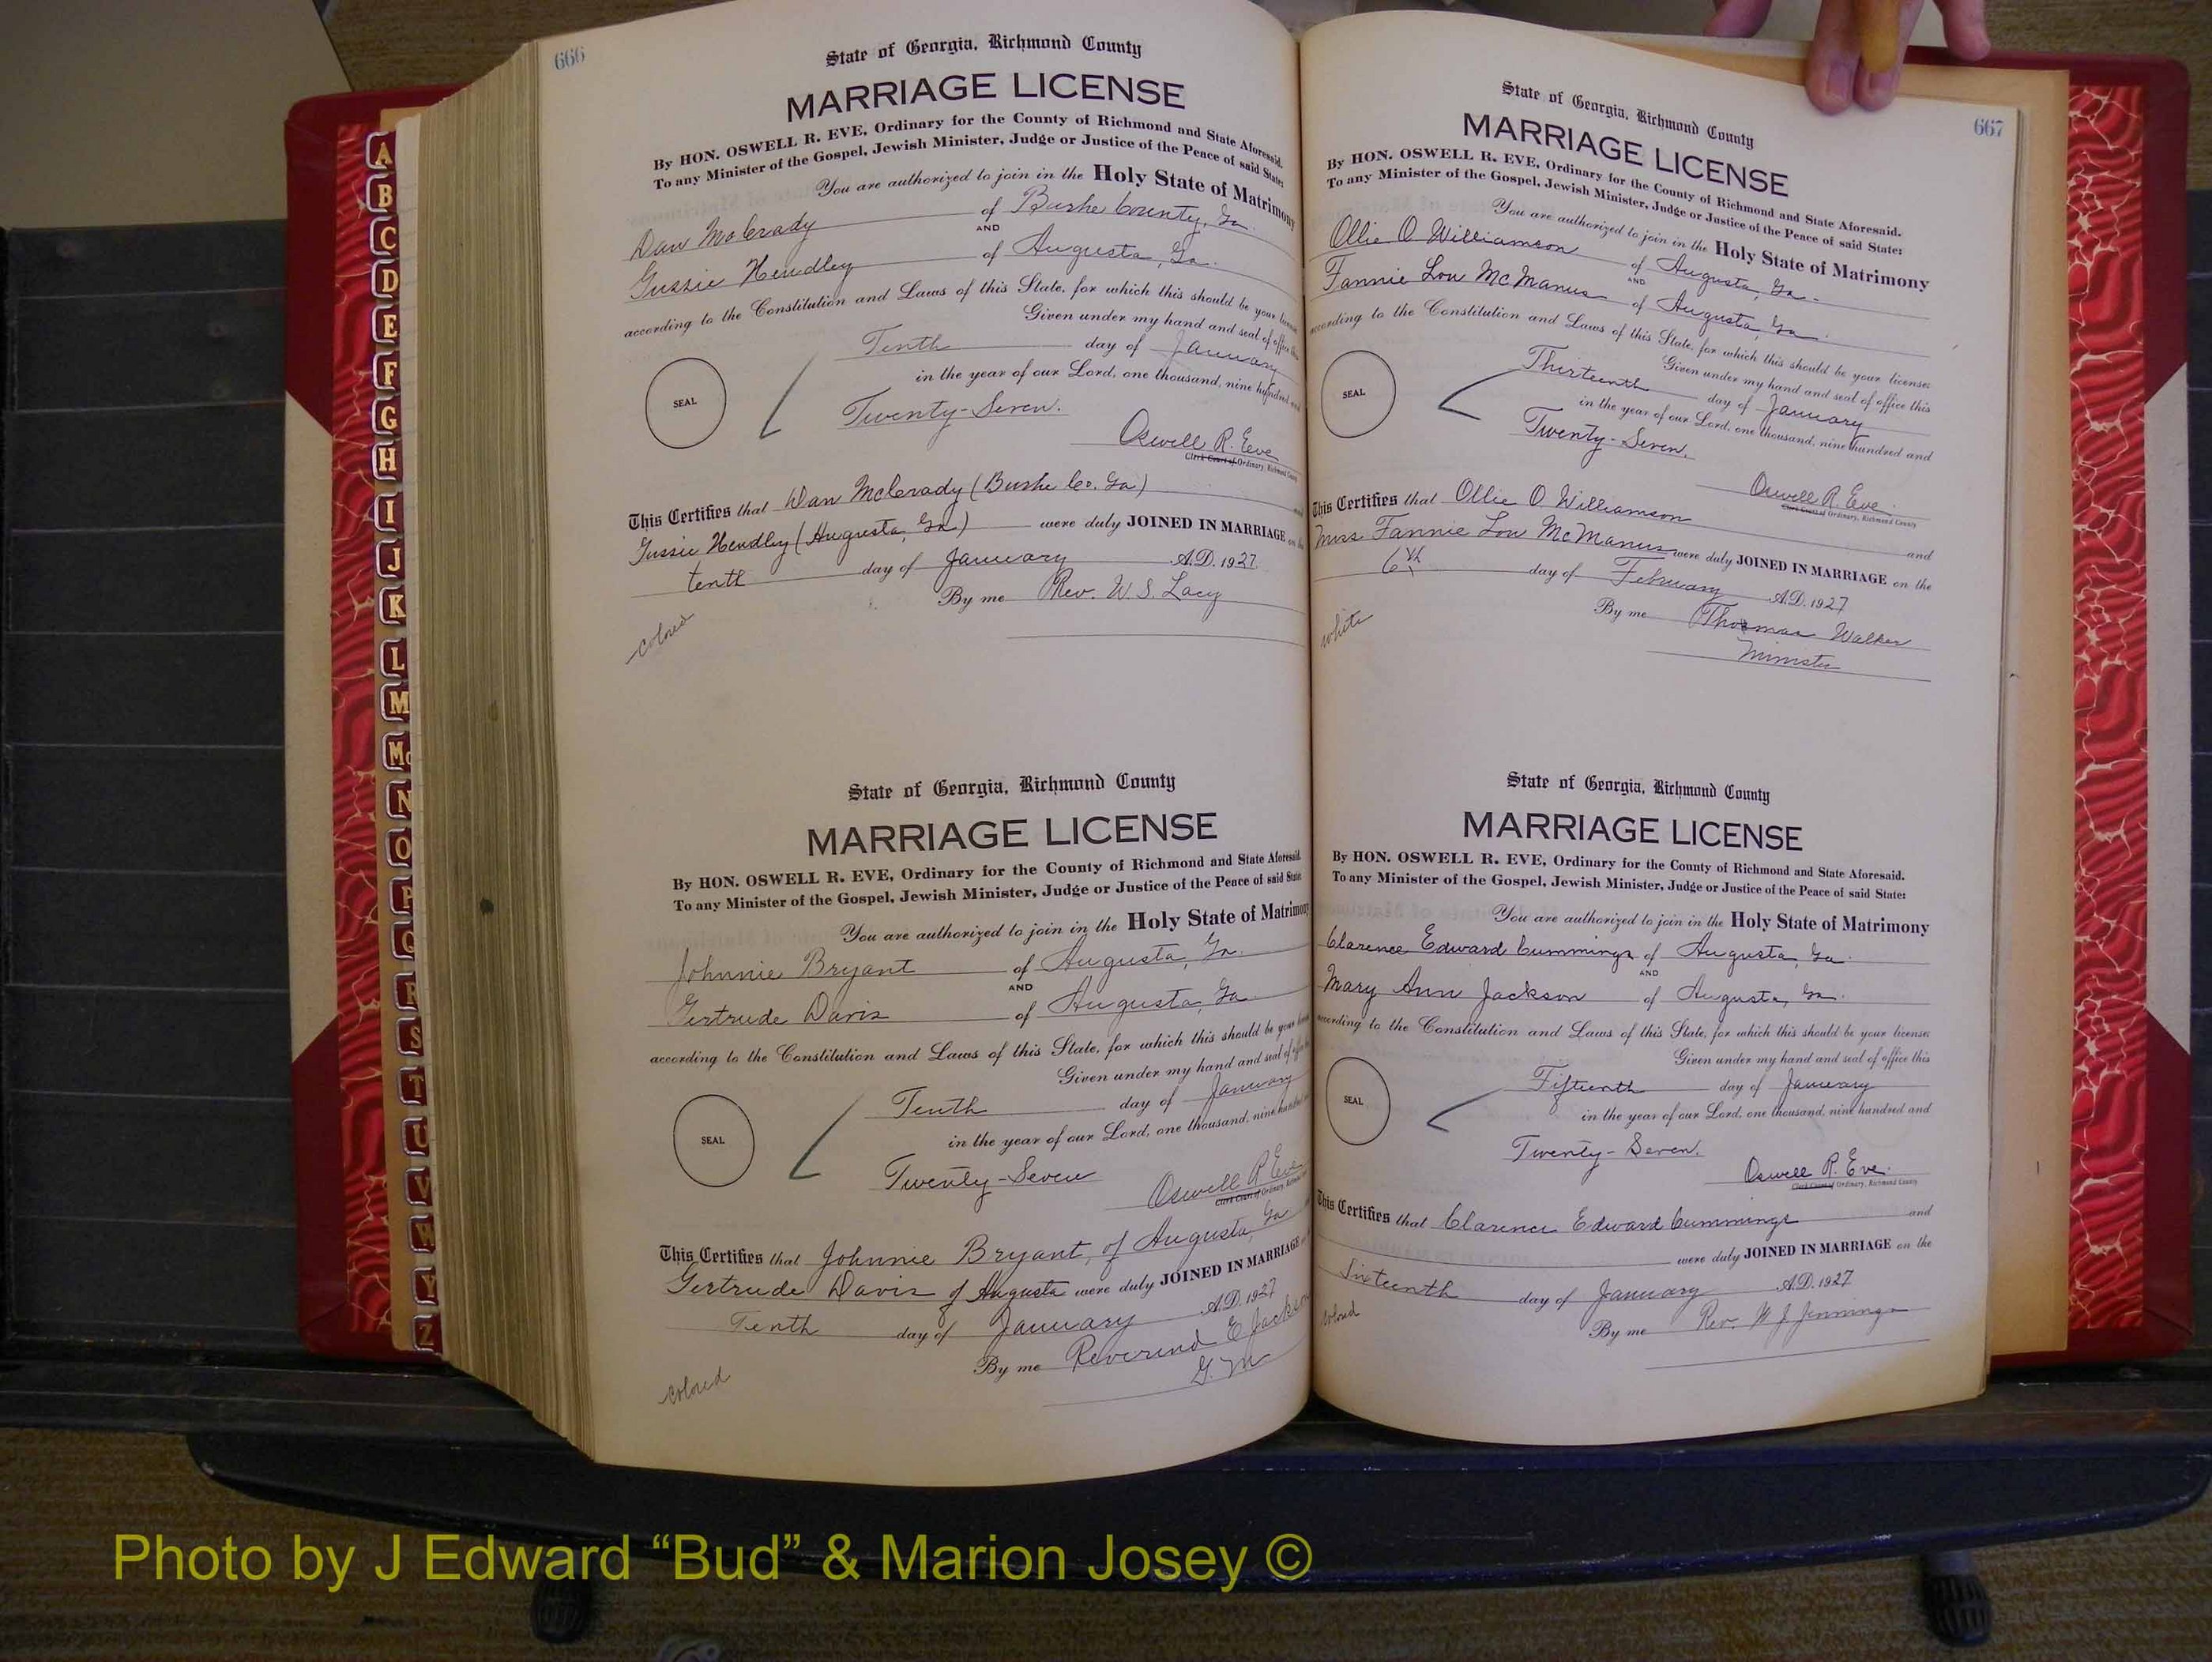 666
State of Georgia, Richmond County
MARRIAGE LICENSE
By HON. OSWELL R. EVE, Ordinary for the County of Richmond and State Aforesaid.
To any Minister of the Gospel, Jewish Minister, Judge or Justice of the Peace of said State:
You are authorized to join in the Holy State of Matrimony
Dan McCrady of Burke County, Ga.
AND
Gussie Hendley of Augusta, Ga.
according to the Constitution and Laws of this State, for which this should be your license
Given under my hand and seal of office this
Tenth day of January
in the year of our Lord, one thousand, nine hundred and
SEAL
Twenty-Seven.
Oswell R. Eve
Clerk Court of Ordinary, Richmond County
This Certifies that Dan McCrady (Burke Co. Ga)
Gussie Hendley (Augusta, Ga) were duly JOINED IN MARRIAGE on the
tenth day of January A.D. 1927
By me Rev. W. S. Lacy
colored
State of Georgia, Richmond County
MARRIAGE LICENSE
By HON. OSWELL R. EVE, Ordinary for the County of Richmond and State Aforesaid.
To any Minister of the Gospel, Jewish Minister, Judge or Justice of the Peace of said State
You are authorized to join in the Holy State of Matrimony
Johnnie Bryant of Augusta, Ga.
AND
Gertrude Davis of Augusta, Ga
according to the Constitution and Laws of this State, for which this should be your
Given under my hand and seal of
Tenth day of January
in the year of our Lord, one thousand, nine hundred
SEAL
Twenty-Seven
Oswell R Eve
Clerk Court of Ordinary,
This Certifies that Johnnie Bryant, of Augusta, Ga
Gertrude Davis of Augusta were duly JOINED IN MARRIAGE
Tenth day of January A.D. 1927
By me Reverend E Jackson
G. M
colored
667
State of Georgia, Richmond County
MARRIAGE LICENSE
By HON. OSWELL R. EVE, Ordinary for the County of Richmond and State Aforesaid.
To any Minister of the Gospel, Jewish Minister, Judge or Justice of the Peace of said State:
You are authorized to join in the Holy State of Matrimony
Ollie O Williamson of Augusta, Ga.
AND
Fannie Lou McManus of Augusta, Ga.
according to the Constitution and Laws of this State, for which this should be your license
Given under my hand and seal of office this
Thirteenth day of January
in the year of our Lord, one thousand, nine hundred and
SEAL
Twenty-Seven.
Oswell R. Eve.
Clerk Court of Ordinary, Richmond County
This Certifies that Ollie O. Williamson and
Miss Fannie Lou McManus were duly JOINED IN MARRIAGE on the
6th day of February A.D. 1927
By me Thomas Walker
Minister
white
State of Georgia, Richmond County
MARRIAGE LICENSE
By HON. OSWELL R. EVE, Ordinary for the County of Richmond and State Aforesaid.
To any Minister of the Gospel, Jewish Minister, Judge or Justice of the Peace of said State:
You are authorized to join in the Holy State of Matrimony
Clarence Edward Cummings of Augusta, Ga.
AND
Mary Ann Jackson of Augusta, Ga.
according to the Constitution and Laws of this State, for which this should be your license
Given under my hand and seal of office this
Fifteenth day of January
in the year of our Lord, one thousand, nine hundred and
SEAL
Twenty-Seven.
Oswell R. Eve.
Clerk Court of Ordinary, Richmond County
This Certifies that Clarence Edward Cummings and
were duly JOINED IN MARRIAGE on the
Sixteenth day of January A.D. 1927
By me Rev. W J Jennings
colored
A
B
C
D
E
F
G
H
I
J
K
L
M
Mc
N
O
P
Q
R
S
T
U
V
W
Y
Z
Photo by J Edward “Bud” & Marion Josey ©